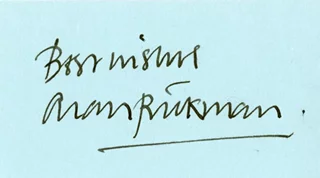 Best wishes
Alan Rickman.